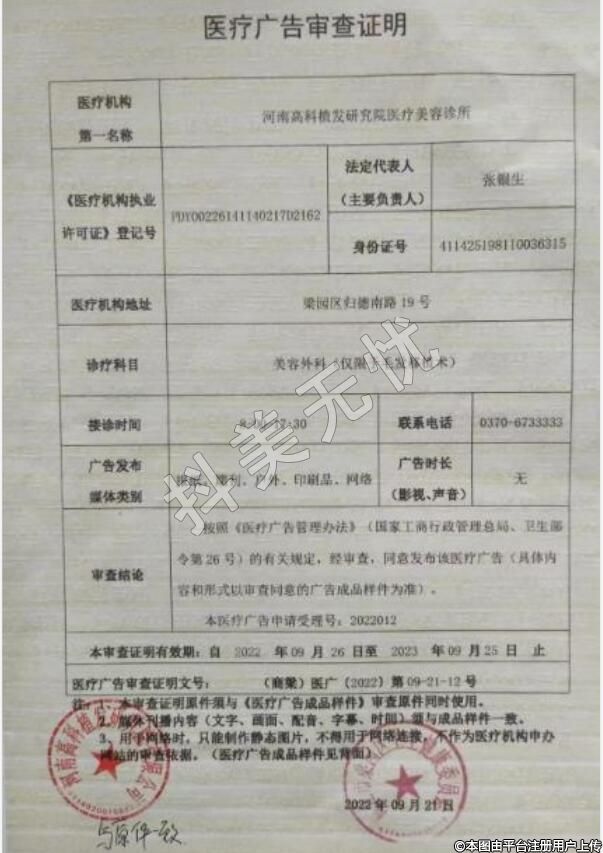 医疗广告审查证明
医疗机构
第一名称
河南高科植发研究院医疗美容诊所
《医疗机构执业
许可证》登记号
PDY00226141140217D2162
法定代表人
（主要负责人）
张银生
身份证号
411425198110036315
医疗机构地址
梁园区归德南路19号
诊疗科目
美容外科（仅限于毛发移植术）
接诊时间
8:00-17:30
联系电话
0370-6733333
广告发布
媒体类别
报纸、期刊、户外、印刷品、网络
广告时长
（影视、声音）
无
审查结论
按照《医疗广告管理办法》（国家工商行政管理总局、卫生部
令第26号）的有关规定，经审查，同意发布该医疗广告（具体内
容和形式以审查同意的广告成品样件为准）。
本医疗广告申请受理号：2022012
本审查证明有效期：自 2022 年 09 月 26 日至 2023 年 09 月 25 日 止
医疗广告审查证明文号：（商梁）医广【2022】第 09-21-12 号
注：1、本审查证明原件须与《医疗广告成品样件》审查原件同时使用。
2、媒体刊播内容（文字、画面、配音、字幕、时间）须与成品样件一致。
3、用于网络时，只能制作静态图片，不得用于网络连接，不作为医疗机构申办
网站的审查依据。（医疗广告成品样件见背面）
2022 年 09 月 21 日
与原件一致
抖美无忧
©本图由平台注册用户上传